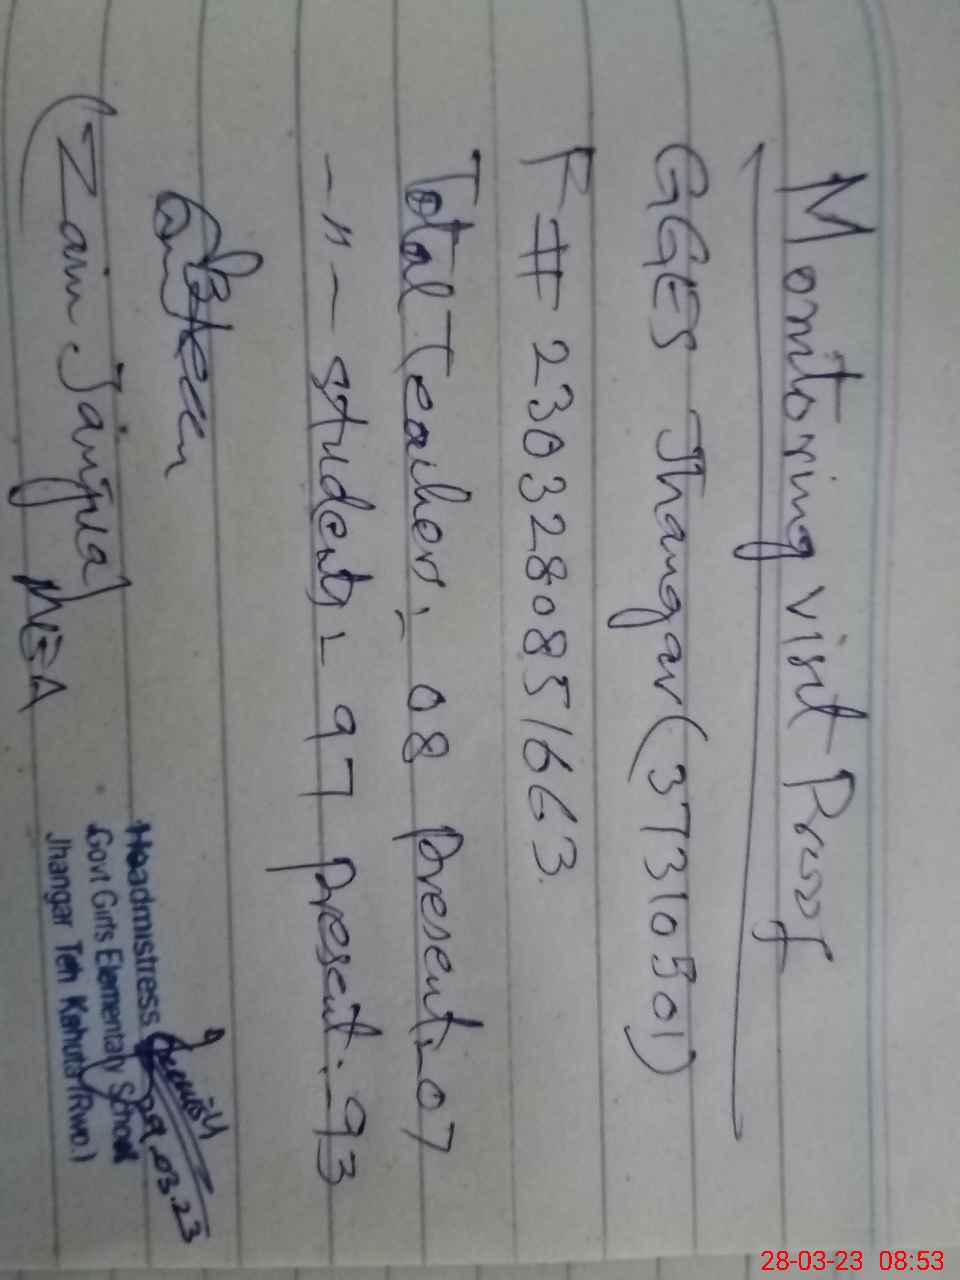 Monitoring visit Proof
GGES Jhangar (37310501)
F# 230328085163
Total Teachers:- 08 present:- 07
-"- students:- 97 present:- 93
(Zain Janjua)
MEA
Headmistress
Govt Girls Elementary School
Jhangar Teh Kahuta (Rwp.)
03.23
28-03-23 08:53